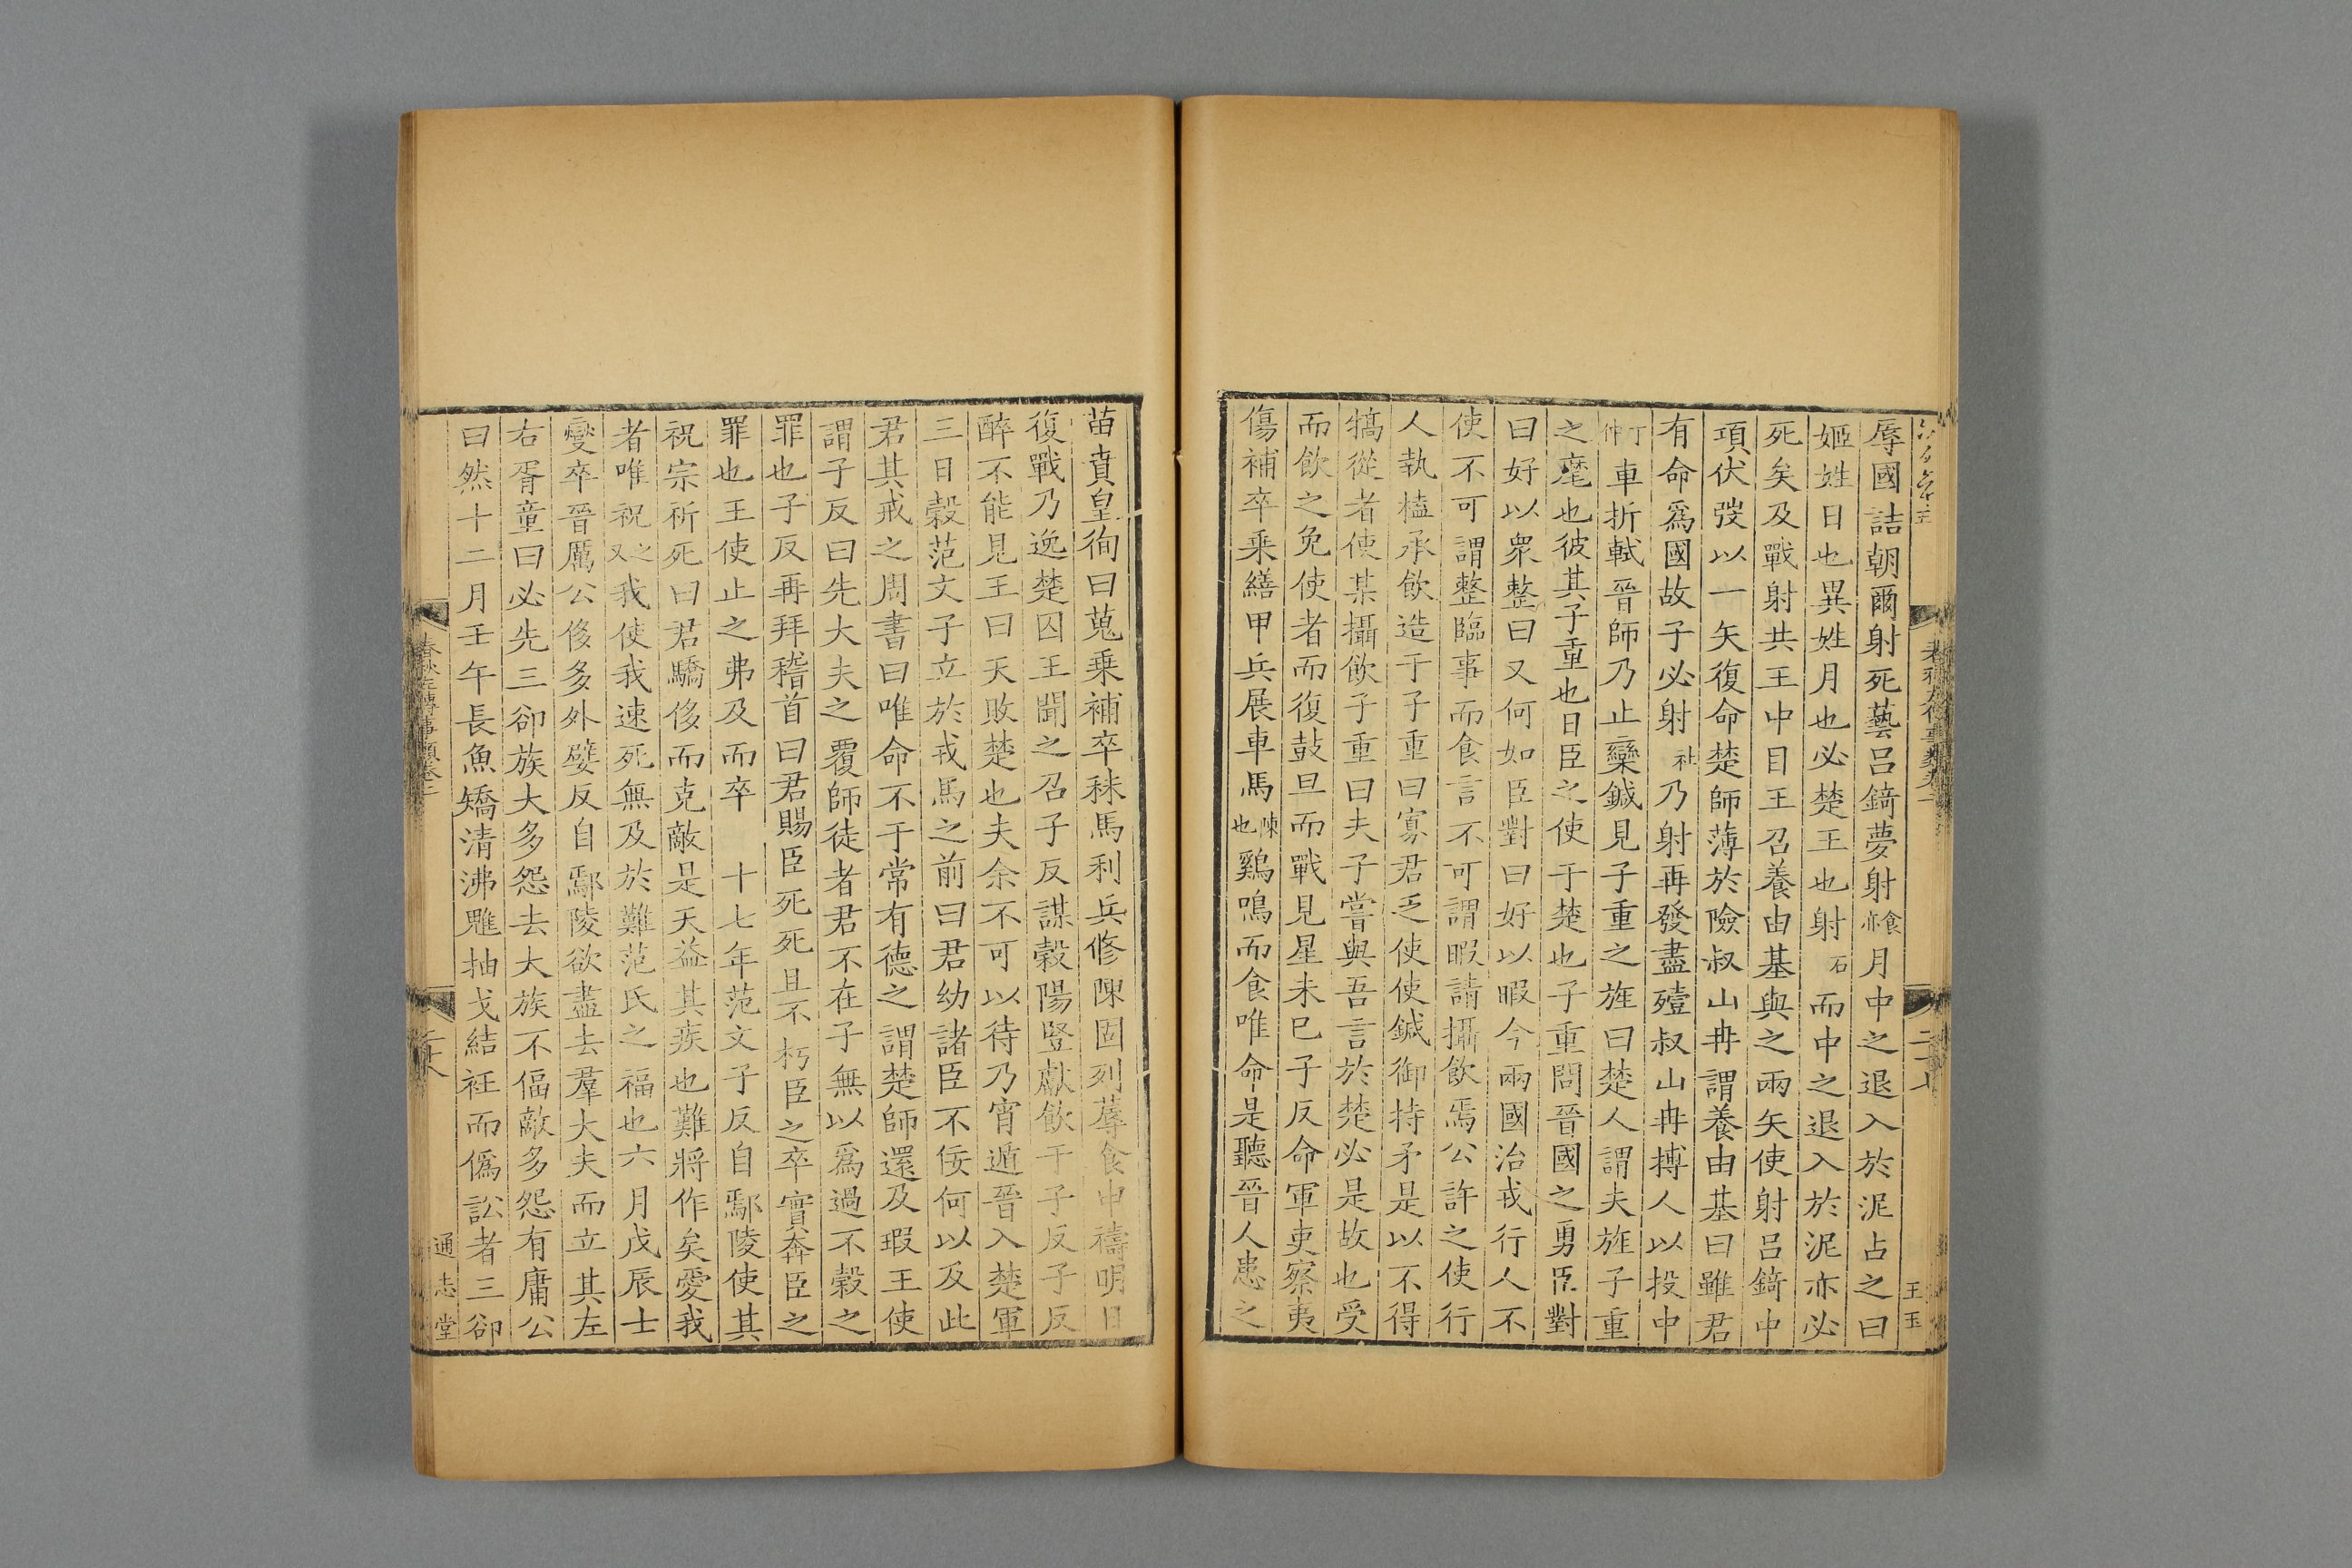 辱國詰朝爾射死藝呂錡夢射食亦月中之退入於泥占之曰
姬姓日也異姓月也必楚王也射石而中之退入於泥亦必
死矣及戰射共王中目王召養由基與之兩矢使射呂錡中
項伏弢以一矢復命楚師薄於險叔山冉謂養由基曰雖君
有命爲國故子必射社乃射再發盡殪叔山冉搏人以投中
丁仲車折軾晉師乃止欒鍼見子重之旌曰楚人謂夫旌子重
之麾也彼其子重也日臣之使于楚也子重問晉國之勇臣對
曰好以衆整曰又何如臣對曰好以暇今兩國治戎行人不
使不可謂整臨事而食言不可謂暇請攝飲焉公許之使行
人執榼承飲造于子重曰寡君乏使使鍼御持矛是以不得
犒從者使某攝飲子重曰夫子嘗與吾言於楚必是故也受
而飲之免使者而復鼓旦而戰見星未已子反命軍吏察夷
傷補卒乘繕甲兵展車馬陳也雞鳴而食唯命是聽晉人患之
王玉
苗賁皇徇曰蒐乘補卒秣馬利兵修陳固列蓐食申禱明日
復戰乃逸楚囚王聞之召子反謀穀陽豎獻飲于子反子反
醉不能見王曰天敗楚也夫余不可以待乃宵遁晉入楚軍
三日穀范文子立於戎馬之前曰君幼諸臣不佞何以及此
君其戒之周書曰唯命不于常有德之謂楚師還及瑕王使
謂子反曰先大夫之覆師徒者君不在子無以爲過不穀之
罪也子反再拜稽首曰君賜臣死死且不朽臣之卒實奔臣之
罪也王使止之弗及而卒 十七年范文子反自鄢陵使其
祝宗祈死曰君驕侈而克敵是天益其疾也難將作矣愛我
者唯祝之又我使我速死無及於難范氏之福也六月戊辰士
燮卒晉厲公侈多外嬖反自鄢陵欲盡去羣大夫而立其左
右胥童曰必先三郤族大多怨去大族不偪敵多怨有庸公
曰然十二月壬午長魚矯清沸魋抽戈結衽而僞訟者三郤
春秋左傳事類卷二
通志堂